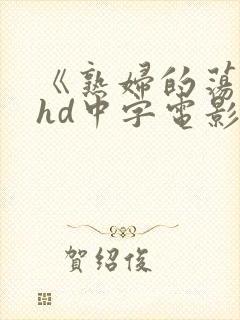 《熟婦的蕩
hd中字電影
賀紹俊